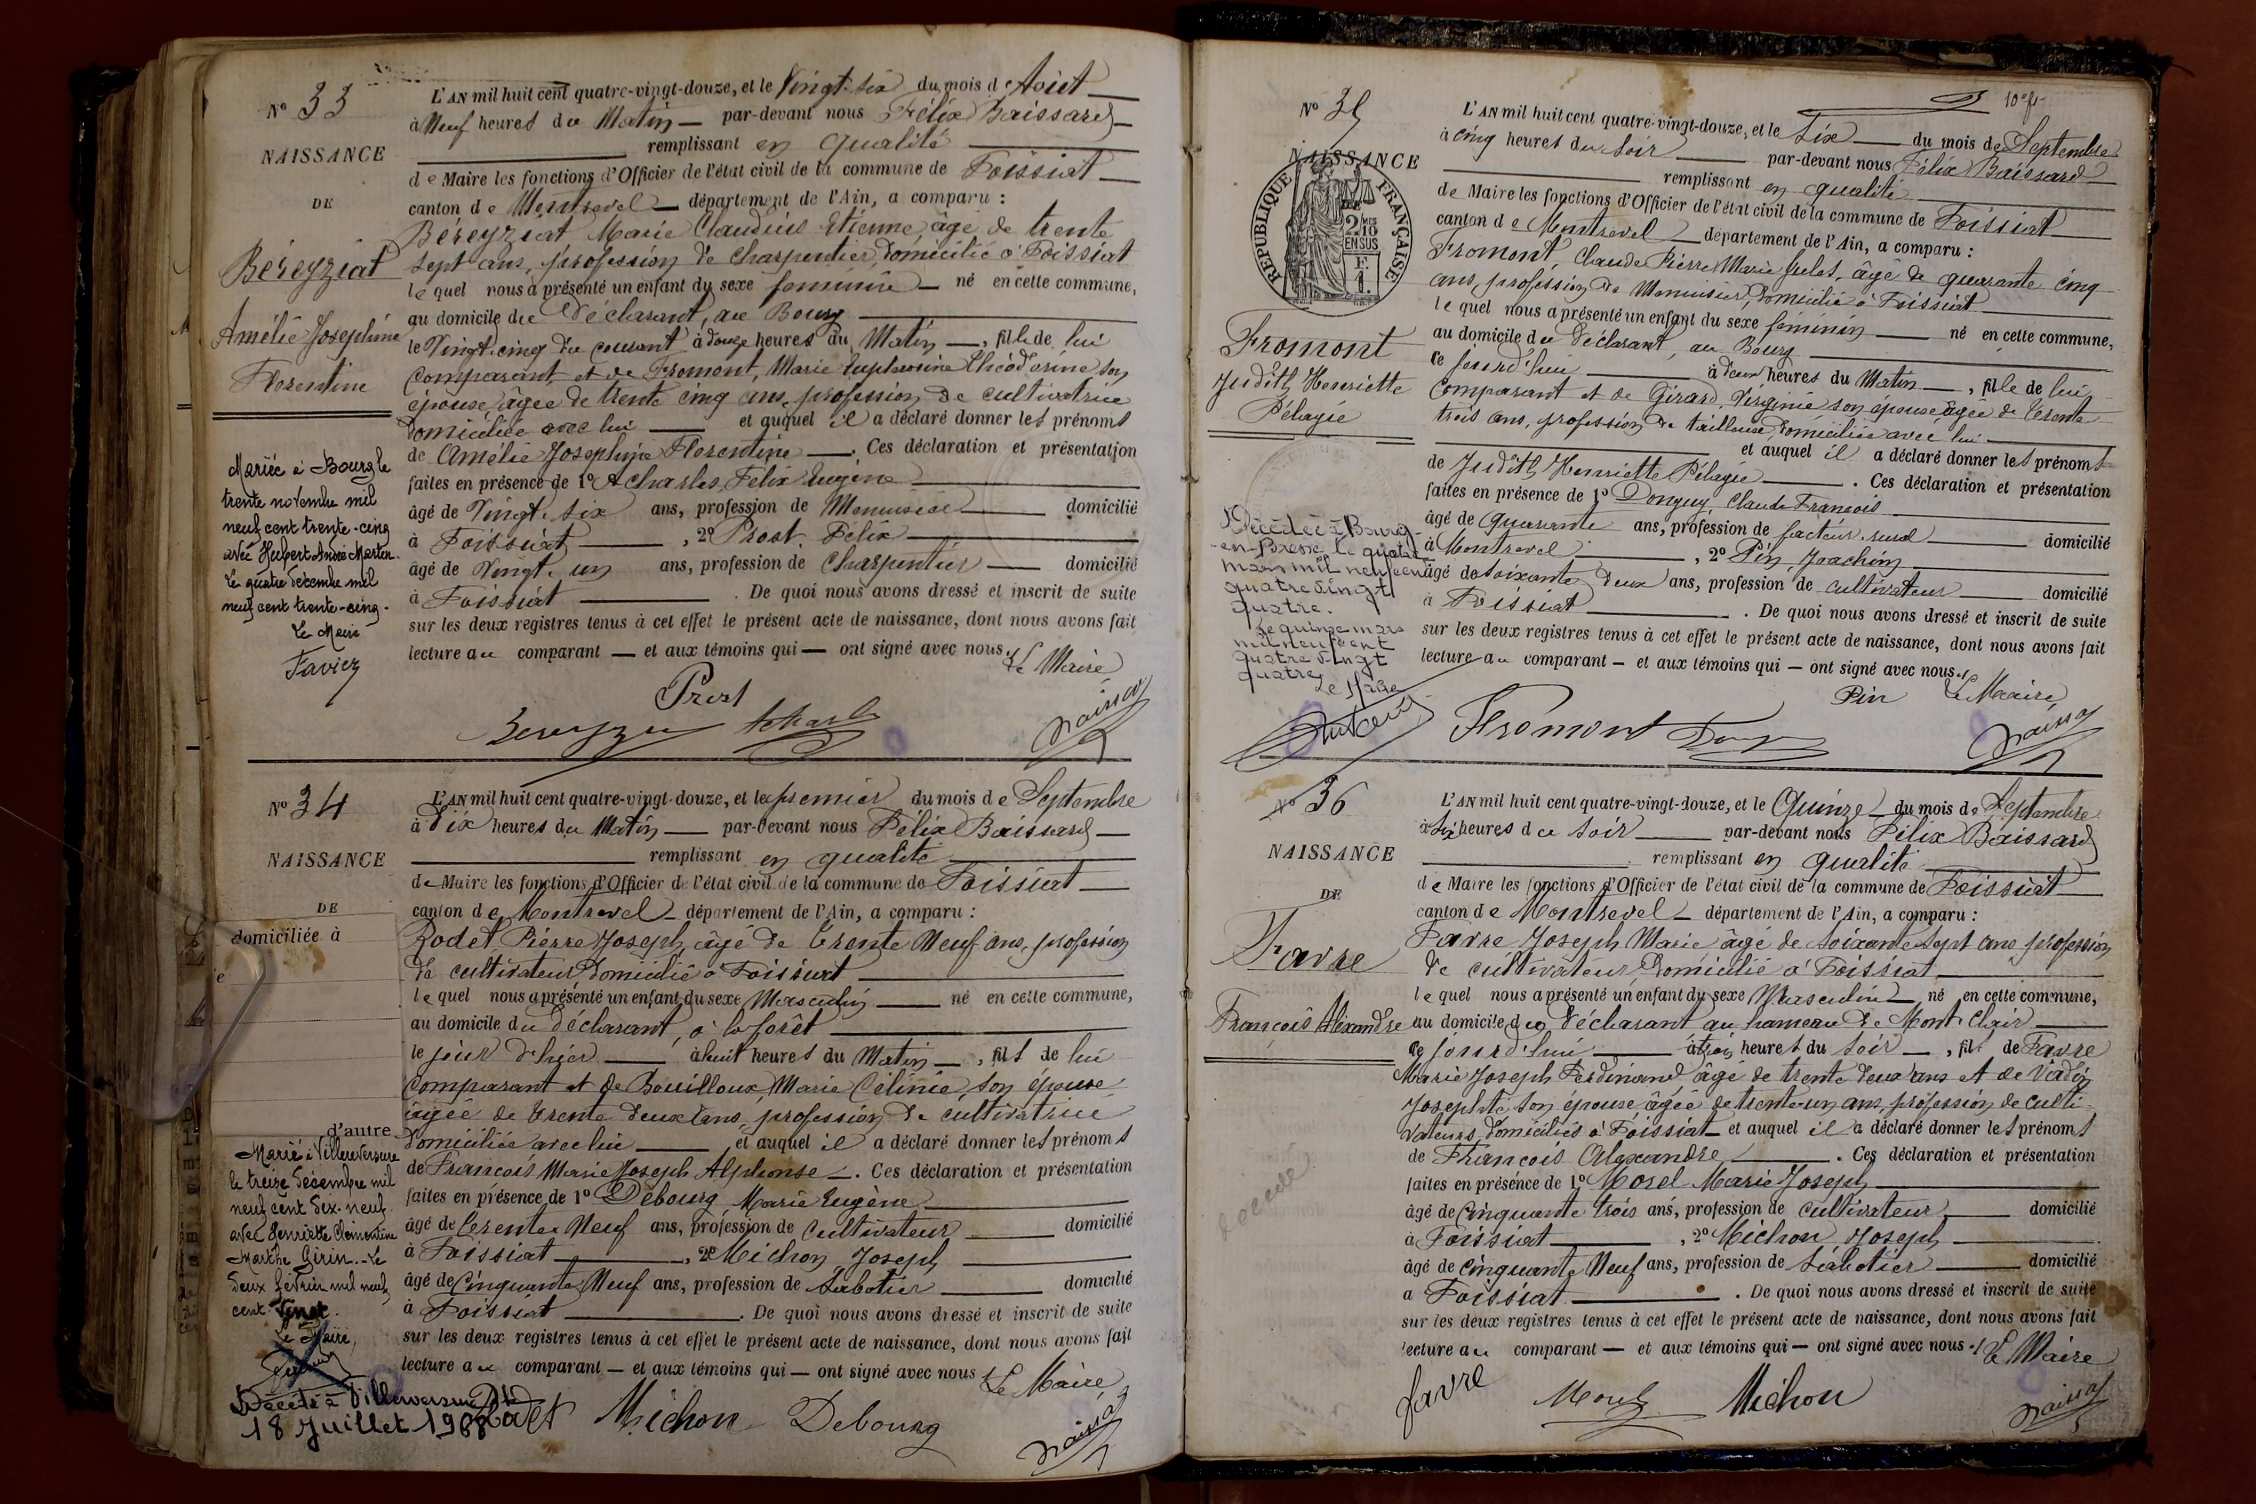 N° 33
NAISSANCE
DE
Béreyziat
Amélie Joséphine
Florentine
Mariée à Bourg le
trente novembre mil
neuf cent trente-cinq
avec Hubert André Martin.
Le quatre décembre mil
neuf cent trente-cinq.
Le Maire
Favier
L'AN mil huit cent quatre-vingt-douze, et le Vingt-six du mois d'Août
à Neuf heures du Matin par-devant nous Félix Baissard
remplissant en qualité
de Maire les fonctions d'Officier de l'état civil de la commune de Foissiat
canton de Montrevel département de l'Ain, a comparu :
Béreyziat Marie Claudius Etienne âgé de trente
sept ans, profession de Charpentier, domicilié à Foissiat
lequel nous a présenté un enfant du sexe féminin né en cette commune,
au domicile du Déclarant, au Bourg
le Vingt-cinq du courant à douze heures du Matin, fille de lui
comparant et de Fromont, Marie Euphrosine Théodorine son
épouse, âgée de trente cinq ans, profession de cultivatrice
domiciliée avec lui et auquel il a déclaré donner les prénoms
de Amélie Joséphine Florentine. Ces déclaration et présentation
faites en présence de 1° Acharles, Félix Eugène
âgé de Vingt-six ans, profession de Menuisier domicilié
à Foissiat, 2° Prost Félix
âgé de Vingt-un ans, profession de Charpentier domicilié
à Foissiat. De quoi nous avons dressé et inscrit de suite
sur les deux registres tenus à cet effet le présent acte de naissance, dont nous avons fait
lecture au comparant — et aux témoins qui — ont signé avec nous.
Le Maire
Prost
N° 34
NAISSANCE
DE
domiciliée à
e
d'autre
Marié à Villereversure
le treize décembre mil
neuf cent dix-neuf
avec Henriette Clémentine
Marthe Girin. Le
deux février mil neuf
cent vingt.
Le Maire,
Décédé à Villereversure
18 Juillet 1968
L'AN mil huit cent quatre-vingt-douze, et le premier du mois de Septembre
à Dix heures du Matin par-devant nous Félix Baissard
remplissant en qualité
de Maire les fonctions d'Officier de l'état civil de la commune de Foissiat
canton de Montrevel département de l'Ain, a comparu :
Rodet, Pierre Joseph, âgé de trente Neuf ans, profession
de cultivateur, domicilié à Foissiat
lequel nous a présenté un enfant du sexe Masculin né en cette commune,
au domicile du déclarant, à la forêt
le jour d'hier à huit heures du Matin, fils de lui
comparant et de Bouilloux, Marie Célinie, son épouse
âgée de trente deux ans, profession de cultivatrice
domiciliée avec lui et auquel il a déclaré donner les prénoms
de François Marie Joseph Alphonse. Ces déclaration et présentation
faites en présence de 1° Debourg Marie Eugène
âgé de trente Neuf ans, profession de Cultivateur domicilié
à Foissiat, 2° Michon Joseph
âgé de Cinquante Neuf ans, profession de Sabotier domicilié
à Foissiat. De quoi nous avons dressé et inscrit de suite
sur les deux registres tenus à cet effet le présent acte de naissance, dont nous avons fait
lecture au comparant — et aux témoins qui — ont signé avec nous
Le Maire
Rodet Michon Debourg
N° 35
NAISSANCE
RÉPUBLIQUE FRANÇAISE
2/10 MES
EN SUS
F.
1.
Fromont
Judith Henriette
Pélagie
Décédée à Bourg-
en-Bresse le quatre
mars mil neuf cent
quatre vingt
quatre.
Le quinze mars
mil neuf cent
quatre vingt
quatre
Le Maire
10e ft
L'AN mil huit cent quatre-vingt-douze, et le Six du mois de Septembre
à cinq heures du Soir par-devant nous Félix Baissard
remplissant en qualité
de Maire les fonctions d'Officier de l'état civil de la commune de Foissiat
canton de Montrevel département de l'Ain, a comparu :
Fromont, Claude Pierre Marie Jules, âgé de quarante cinq
ans, profession de Menuisier, domicilié à Foissiat
lequel nous a présenté un enfant du sexe féminin né en cette commune,
au domicile du Déclarant, au Bourg
ce jourd'hui à deux heures du Matin, fille de lui
comparant et de Girard, Virginie son épouse âgée de trente
trois ans, profession de tailleuse, domiciliée avec lui
et auquel il a déclaré donner les prénoms
de Judith Henriette Pélagie. Ces déclaration et présentation
faites en présence de 1° Donguy, Claude François
âgé de Quarante ans, profession de facteur rural domicilié
à Montrevel, 2° Pin, Joachim
âgé de soixante deux ans, profession de cultivateur domicilié
à Foissiat. De quoi nous avons dressé et inscrit de suite
sur les deux registres tenus à cet effet le présent acte de naissance, dont nous avons fait
lecture au comparant — et aux témoins qui — ont signé avec nous.
Pin Le Maire
Fromont
N° 36
NAISSANCE
DE
Favre
François Alexandre
décédé
L'AN mil huit cent quatre-vingt-douze, et le Quinze du mois de Septembre
à Six heures du Soir par-devant nous Félix Baissard
remplissant en qualité
de Maire les fonctions d'Officier de l'état civil de la commune de Foissiat
canton de Montrevel département de l'Ain, a comparu :
Favre Joseph Marie âgé de soixante-sept ans profession
de cultivateur, domicilié à Foissiat
lequel nous a présenté un enfant du sexe Masculin né en cette commune,
au domicile du déclarant au hameau de Mont Clair
ce jourd'hui à trois heures du Soir, fils de Favre
Marie Joseph Ferdinand âgé de trente deux ans et de Verdin
Josephte son épouse âgée de trente-un ans, profession de culti-
vateurs, domiciliés à Foissiat et auquel il a déclaré donner les prénoms
de François Alexandre. Ces déclaration et présentation
faites en présence de 1° Morel Marie Joseph
âgé de Cinquante trois ans, profession de cultivateur domicilié
à Foissiat, 2° Michon Joseph
âgé de cinquante Neuf ans, profession de Sabotier domicilié
à Foissiat. De quoi nous avons dressé et inscrit de suite
sur les deux registres tenus à cet effet le présent acte de naissance, dont nous avons fait
lecture au comparant — et aux témoins qui — ont signé avec nous.
Le Maire
Favre Morel Michon